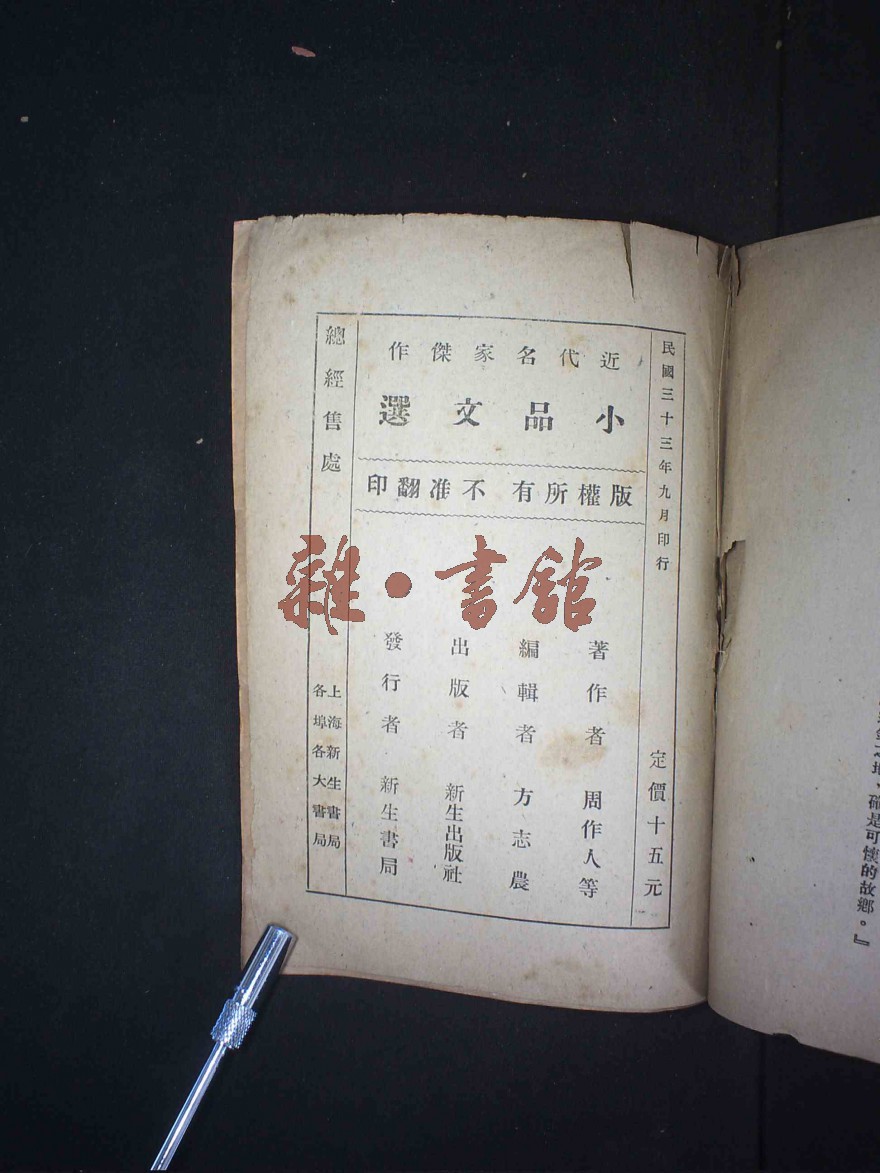 民國三十三年九月印行
定價十五元
近代名家傑作
小品文選
版權所有 不准翻印
著作者 周作人等
編輯者 方志農
出版者 新生出版社
發行者 新生書局
總經售處
上海新生書局
各埠各大書局
雜·書館
確是可懷的故鄉。』